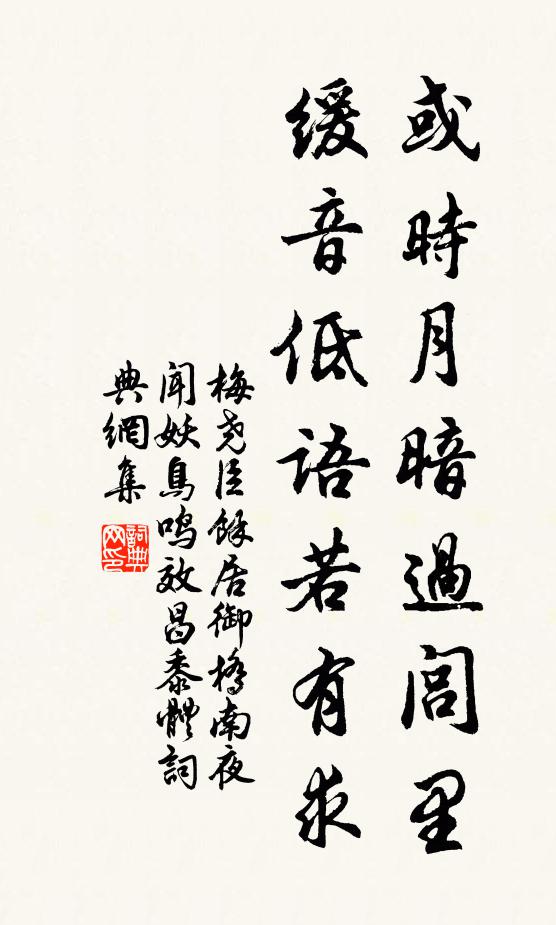 或時月暗過閭里
緩音低語若有求
梅堯臣餘居御橋南夜
聞妖鳥鳴效昌黎體詞
典網集
詞典網印